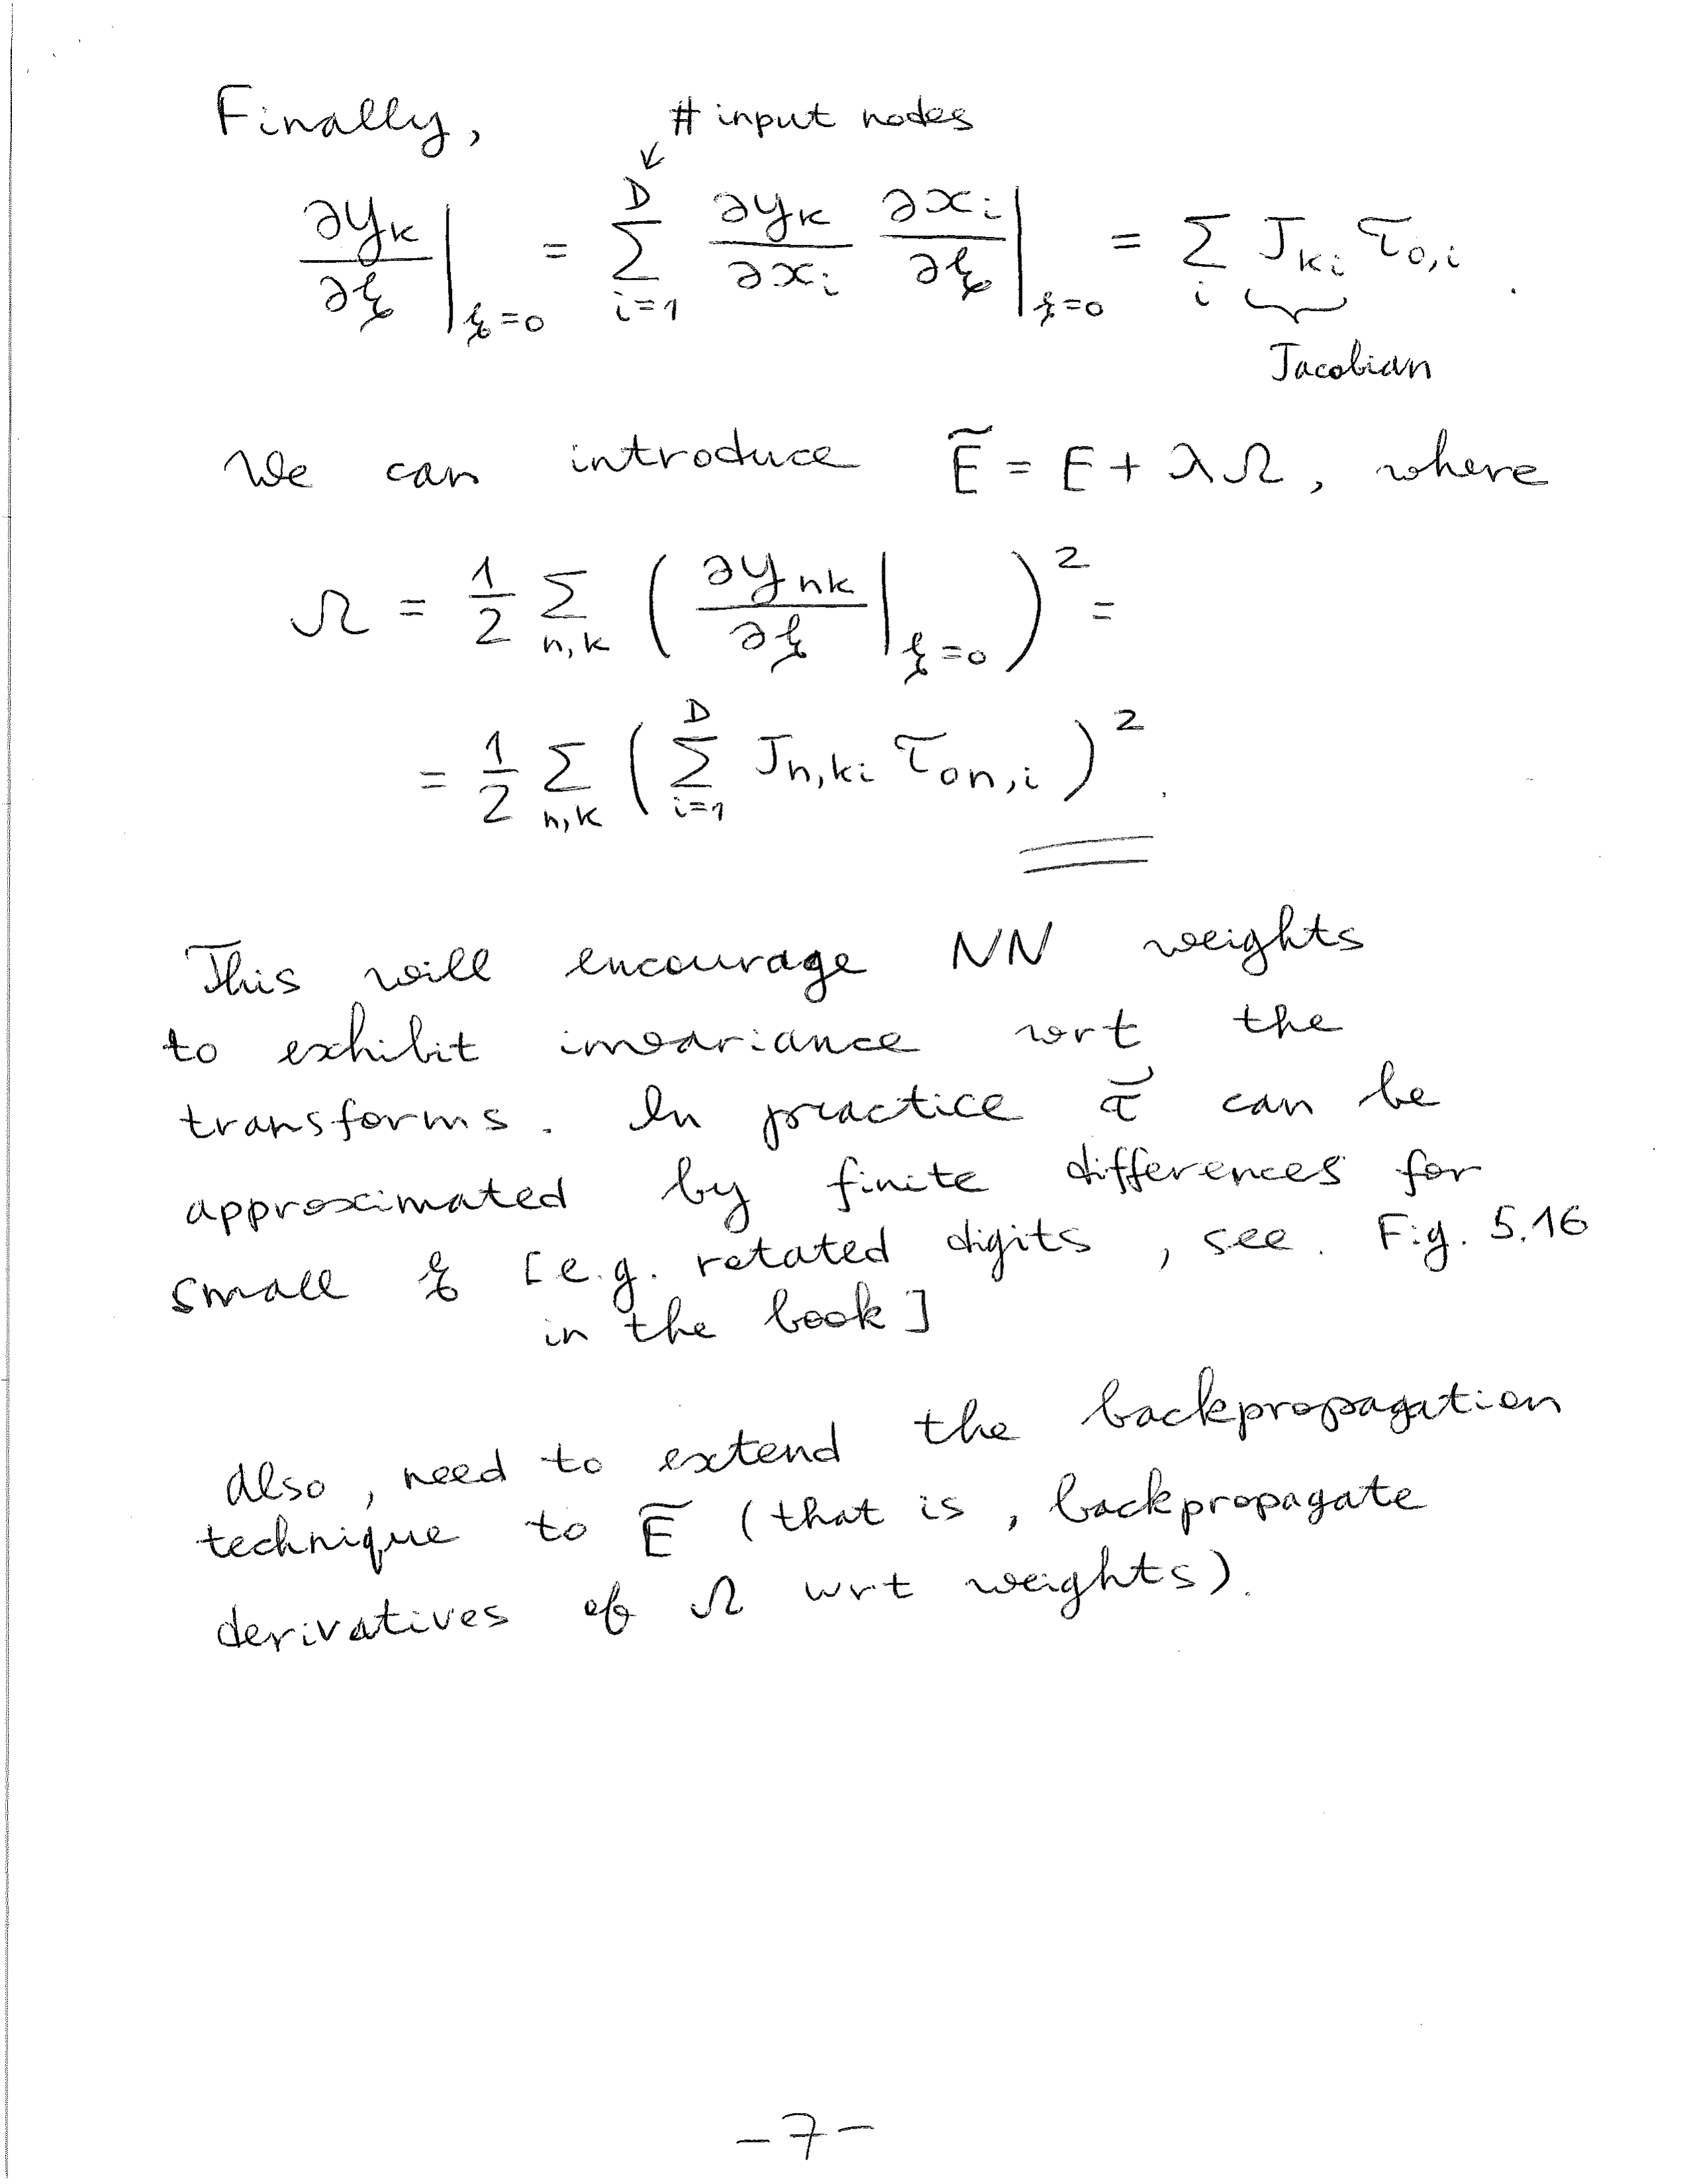 Finally,
# input nodes
∂y_k/∂ξ |_{ξ=0} = Σ_{i=1}^{D} ∂y_k/∂x_i ∂x_i/∂ξ |_{ξ=0} = Σ_i J_{ki} τ_{0,i} .
Jacobian
We can introduce Ẽ = E + λΩ, where
Ω = 1/2 Σ_{n,k} ( ∂y_{nk}/∂ξ |_{ξ=0} )² =
= 1/2 Σ_{n,k} ( Σ_{i=1}^{D} J_{n,ki} τ_{0n,i} )² .
This will encourage NN weights
to exhibit invariance wrt the
transforms. In practice τ⃗ can be
approximated by finite differences for
small ξ [e.g. rotated digits, see. Fig. 5.16
in the book]
Also, need to extend the backpropagation
technique to Ẽ (that is, backpropagate
derivatives of Ω wrt weights).
-7-